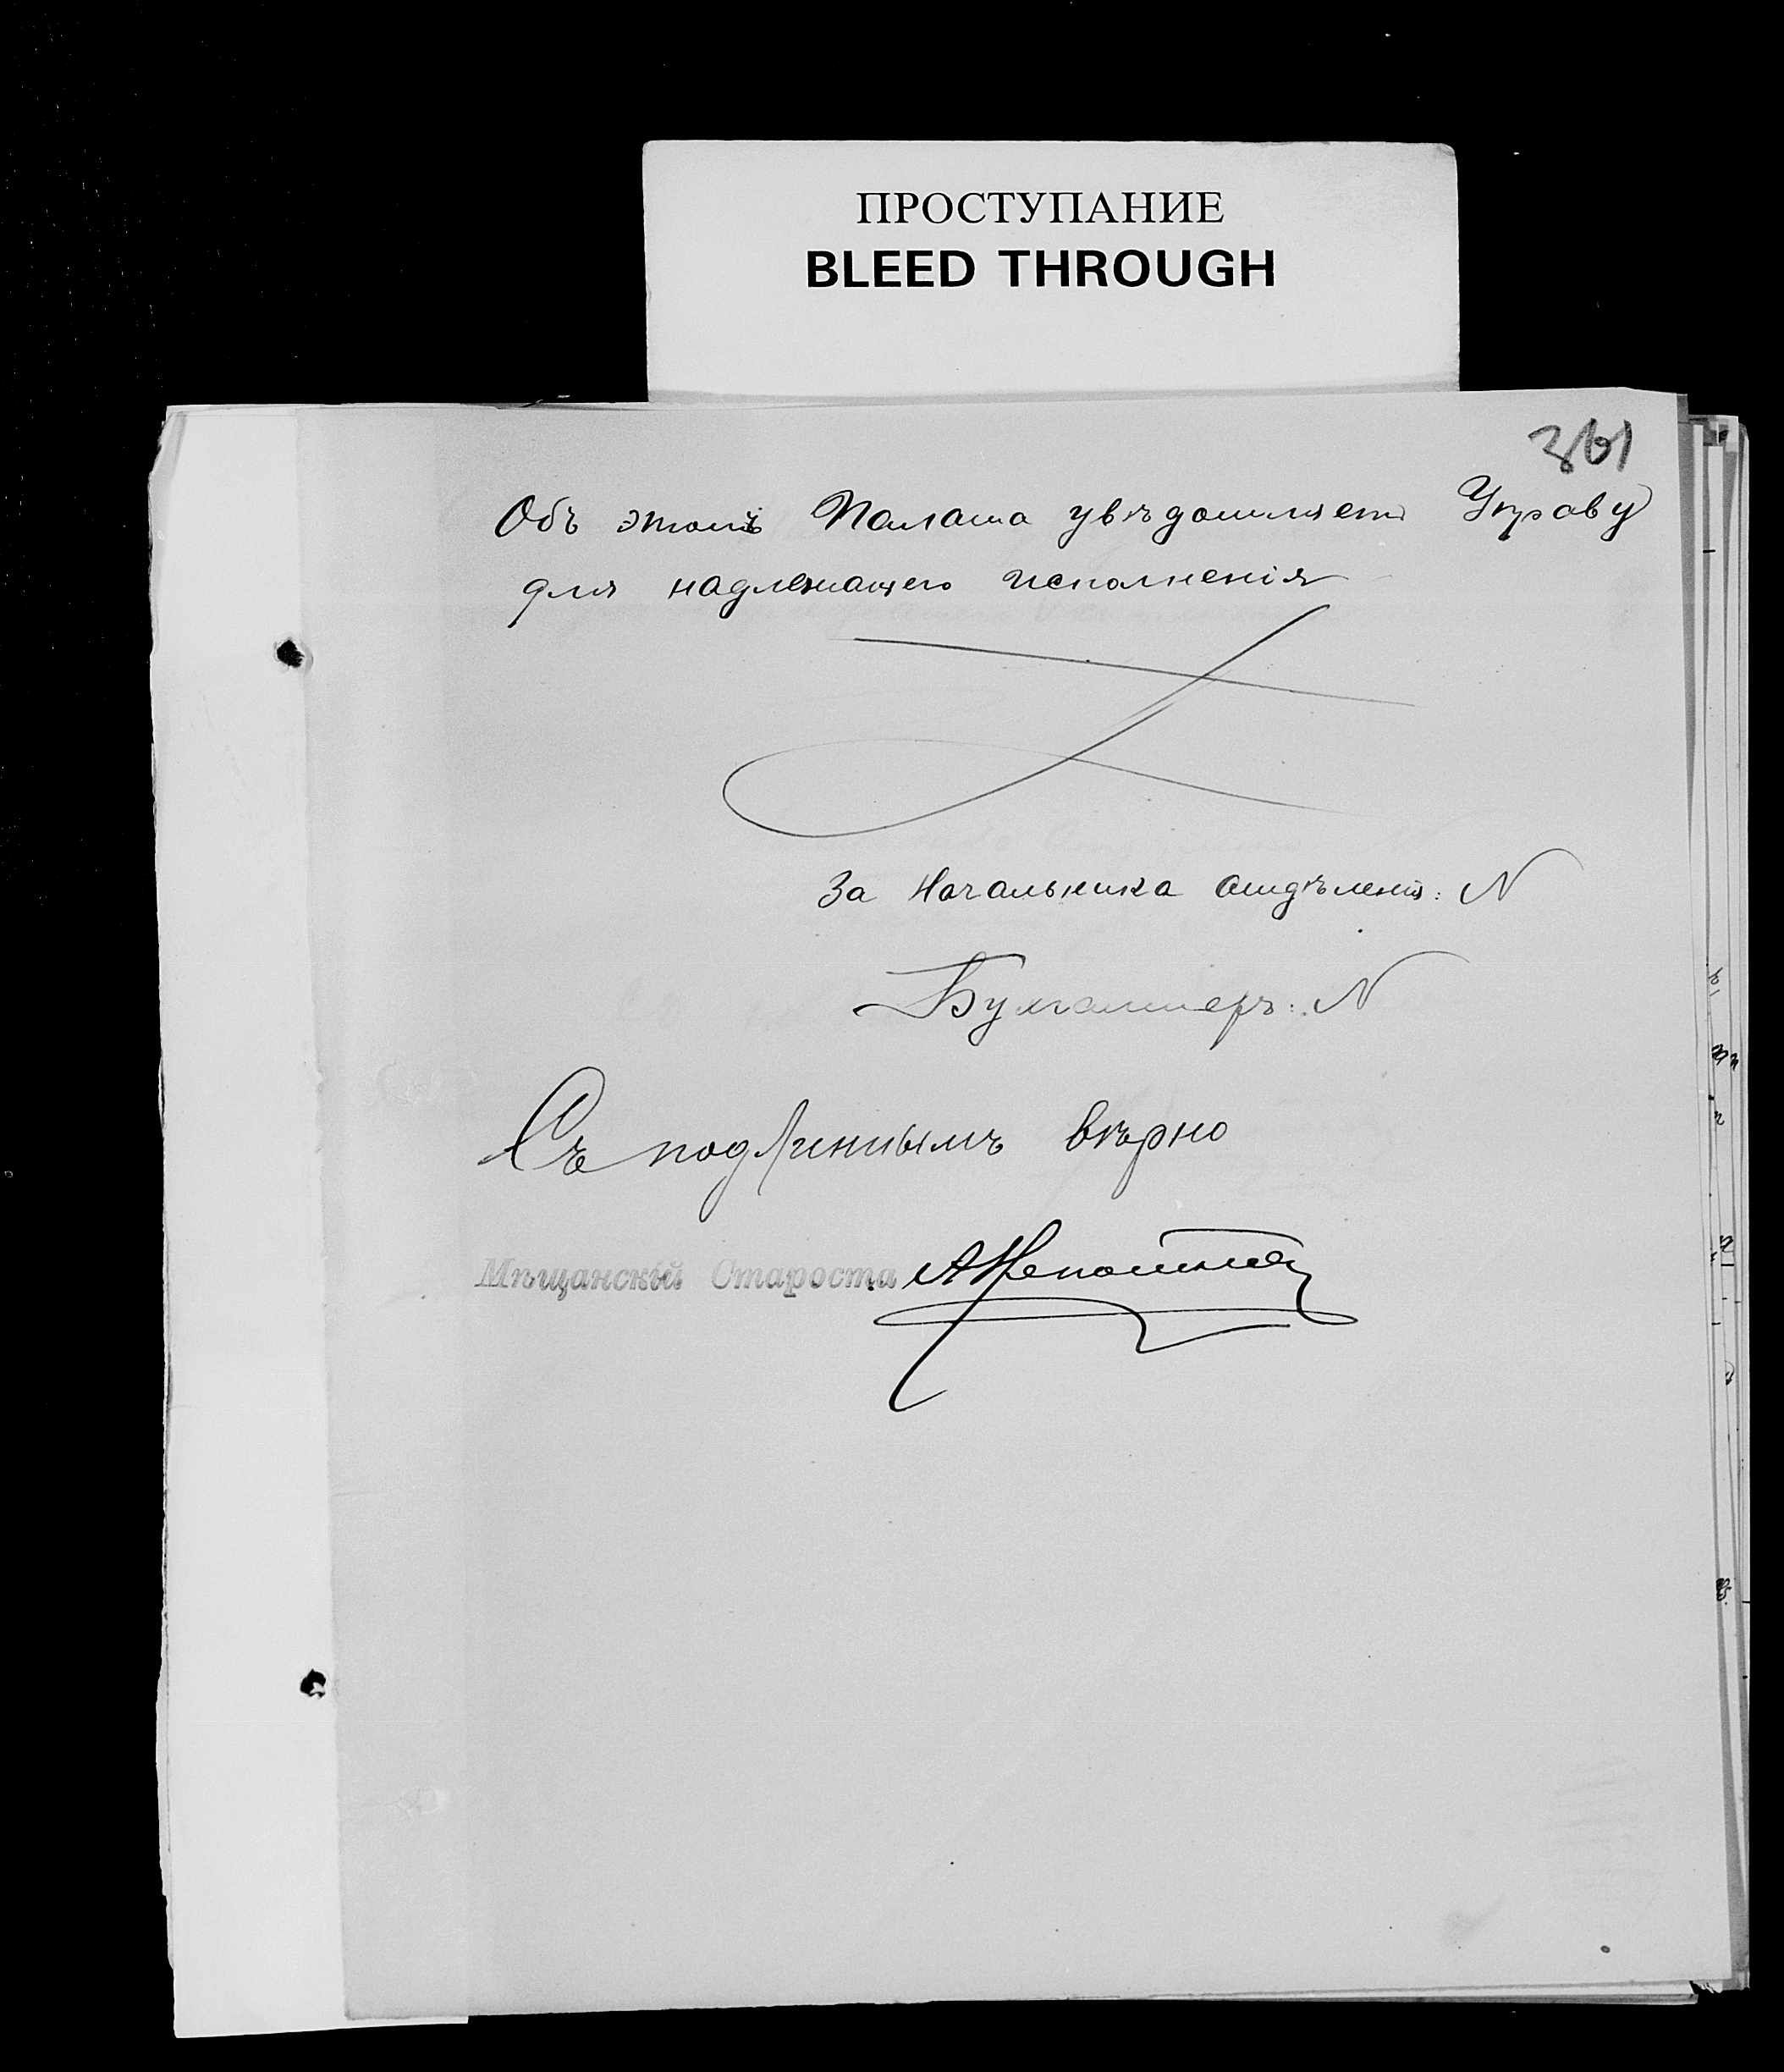 ПРОСТУПАНИЕ
BLEED THROUGH
361
Объ этомъ Палата увѣдомляетъ Управу
для надлежащего исполненія
За Начальника Отдѣленія: N
Бухгалтеръ: N
Съ подлиннымъ вѣрно
Мѣщанскій Староста